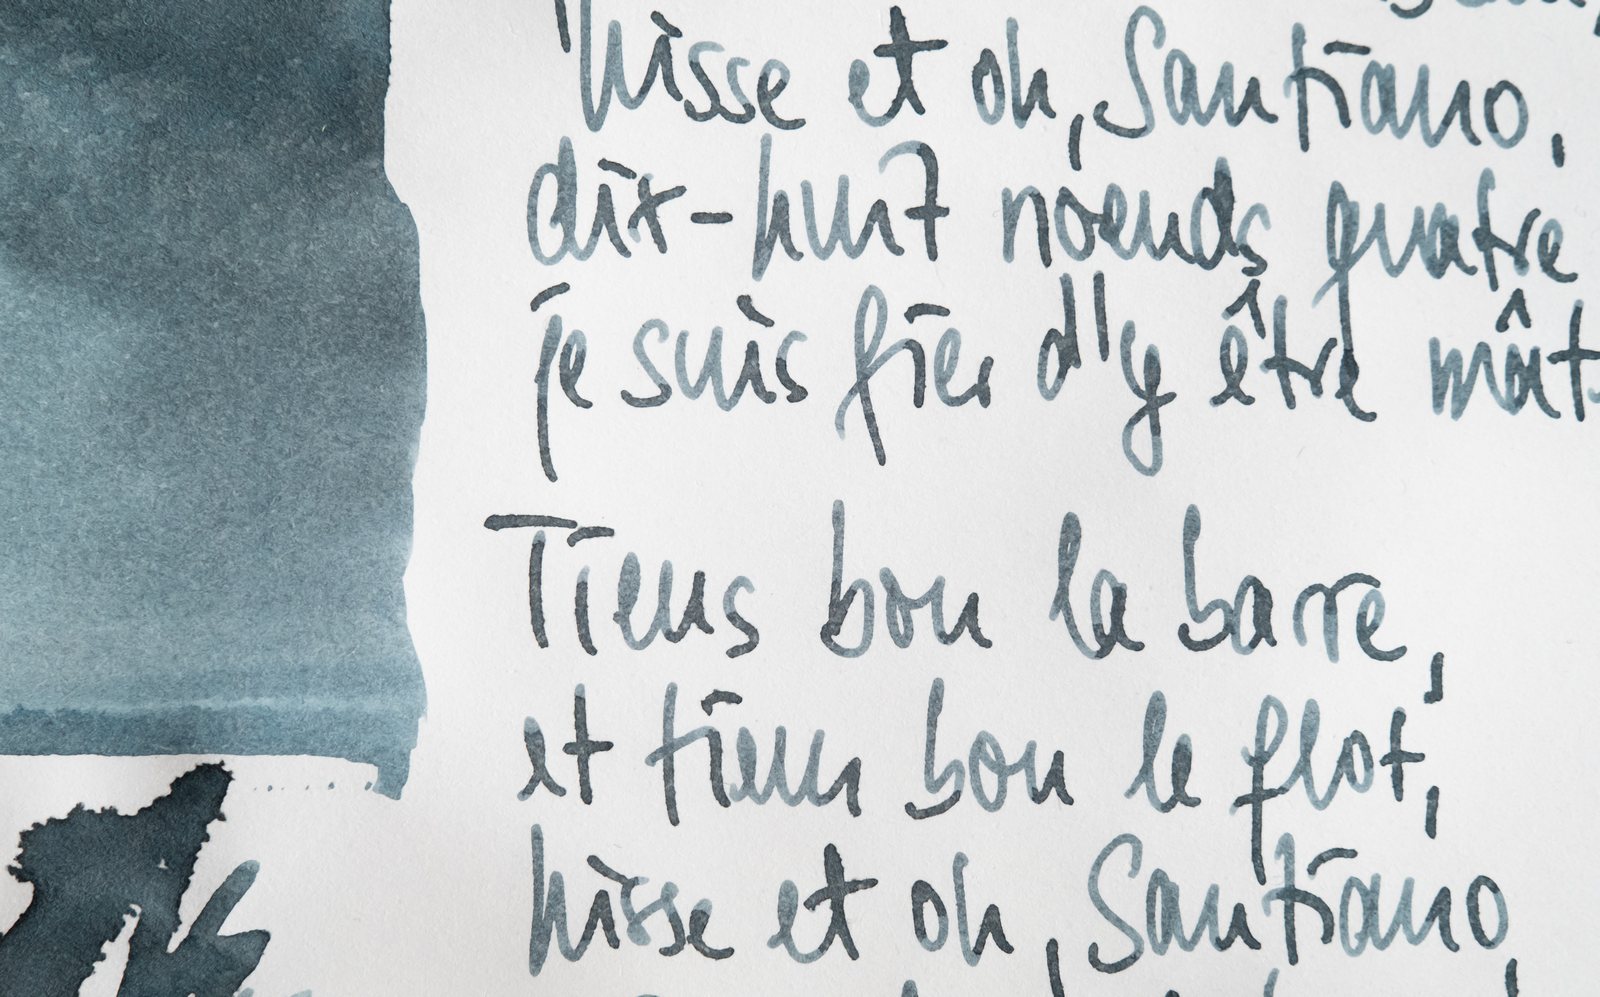 hisse et oh, Santiano,
dix-huit nœuds quatre
je suis fier d'y être mat
Tiens bon la barre,
et tiens bon le flot,
hisse et oh, Santiano,